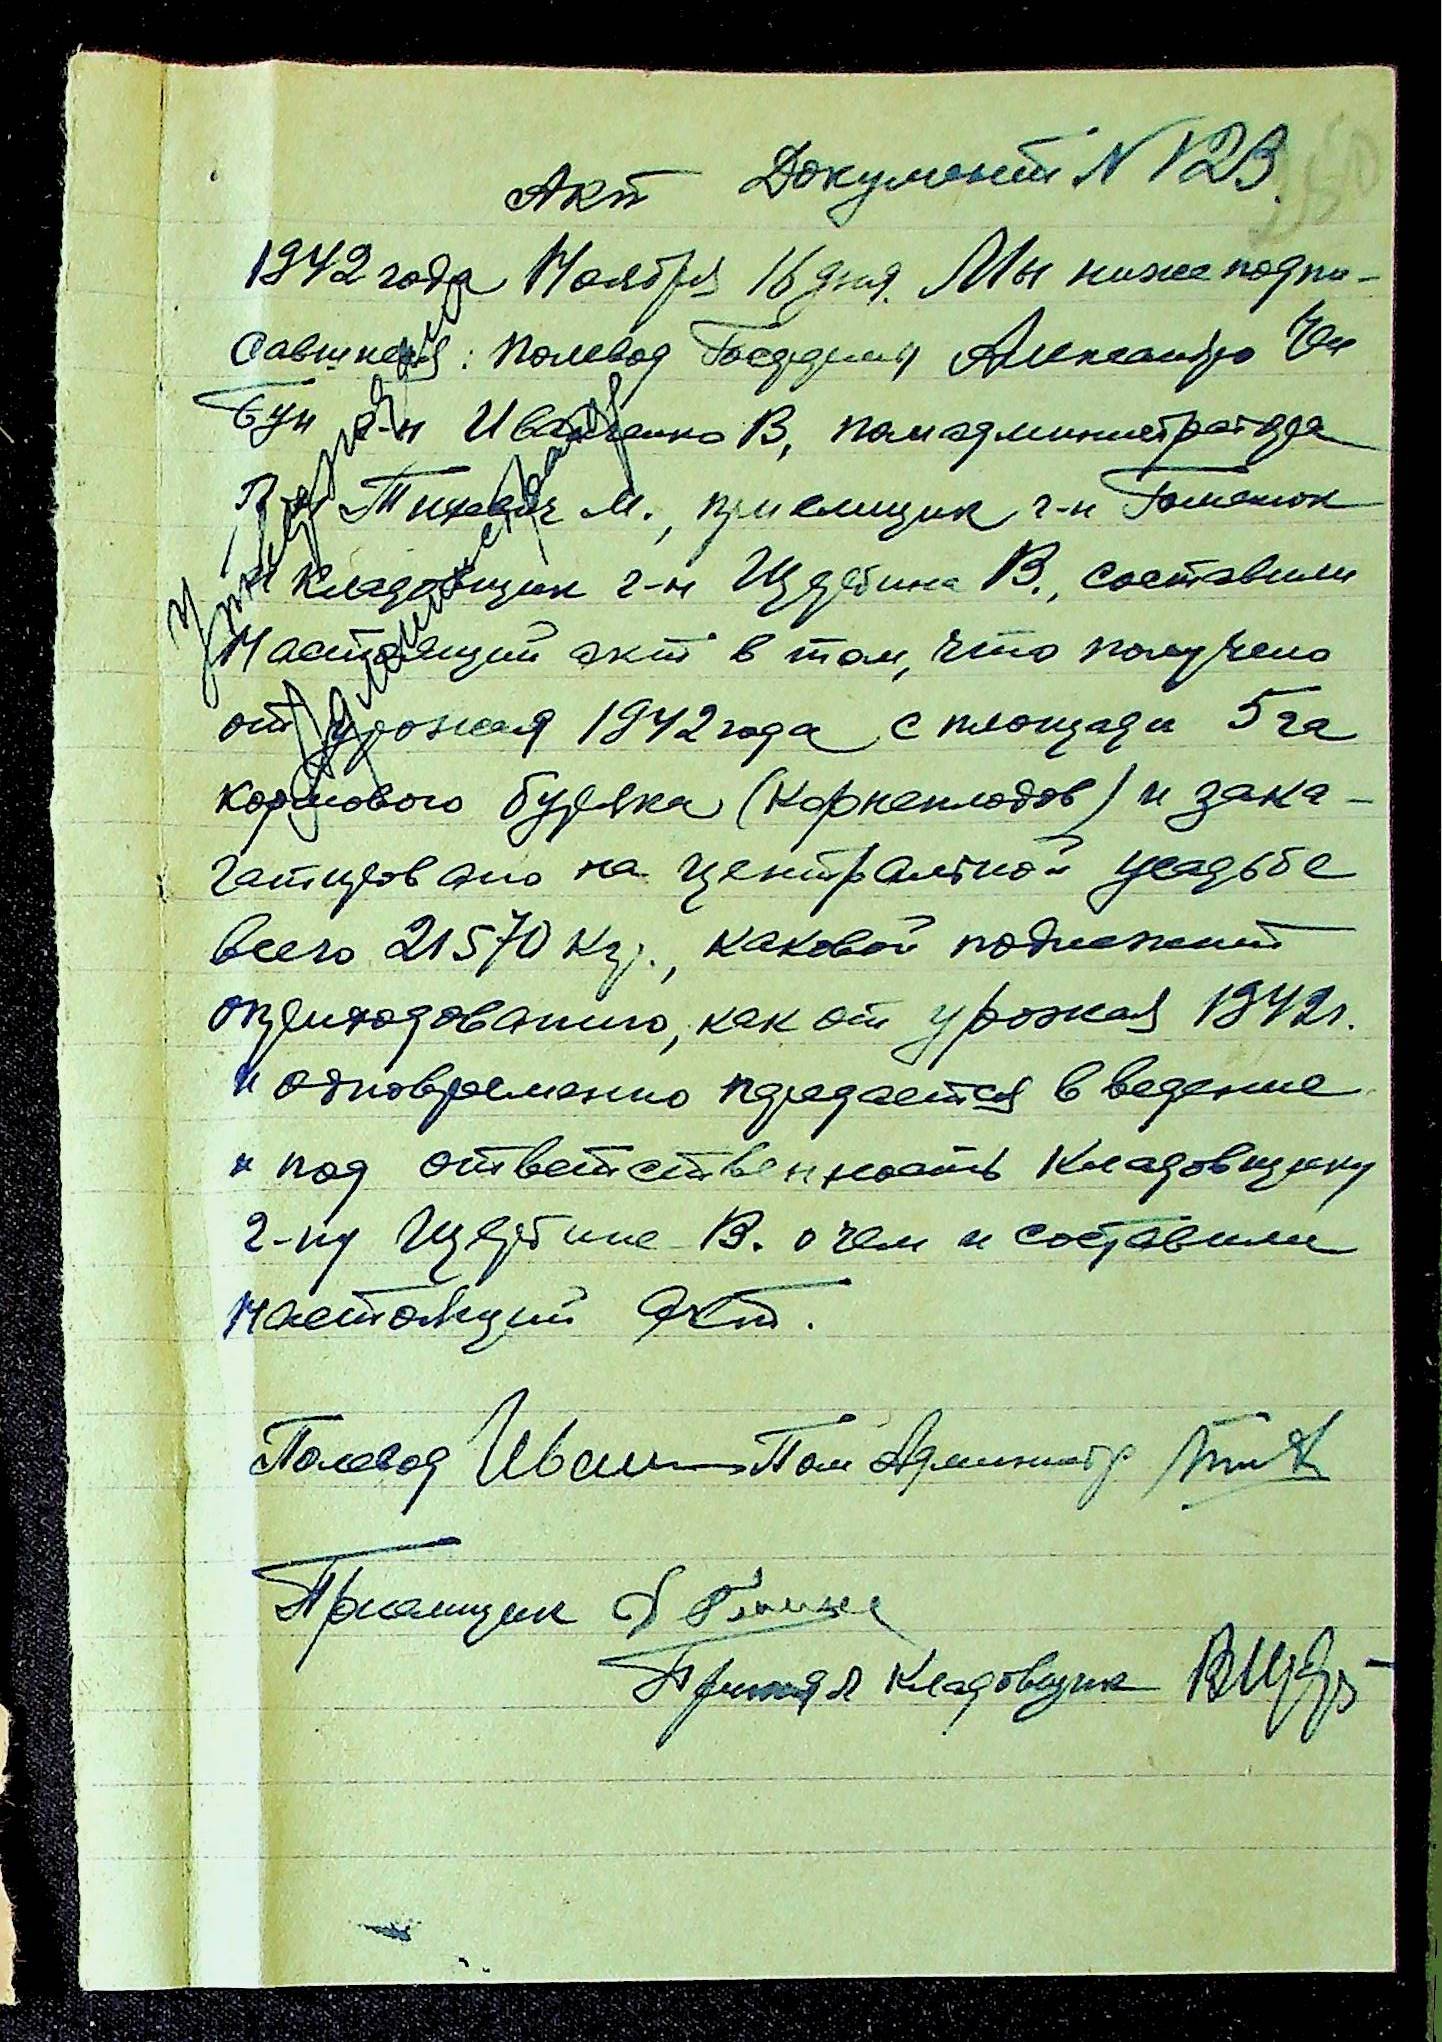 Акт Документ N 123
1942 года Ноября 16 дня. Мы нижеподпи-
савшиеся: полевод Госуд Александро
Бун г-н Иванченко В, помадминистратора
Тихевич М., приемщик г-н Гоменюк
и кладовщик г-н Щербина В., составили
настоящий акт в том, что получено
от урожая 1942 года с площади 5 га
кормового буряка (корнеплодов) и зака-
гатировано на центральной усадьбе
всего 21570 кгр., каковой подлежит
оприходованию, как от урожая 1942 г.
и одновременно передается в ведение
и под ответственность кладовщику
г-ну Щербине В. о чем и составили
настоящий акт.
Утверждаю
Администратор
Полевод Иван Пом Администр
Приемщик
Принял Кладовщик ВЩерб